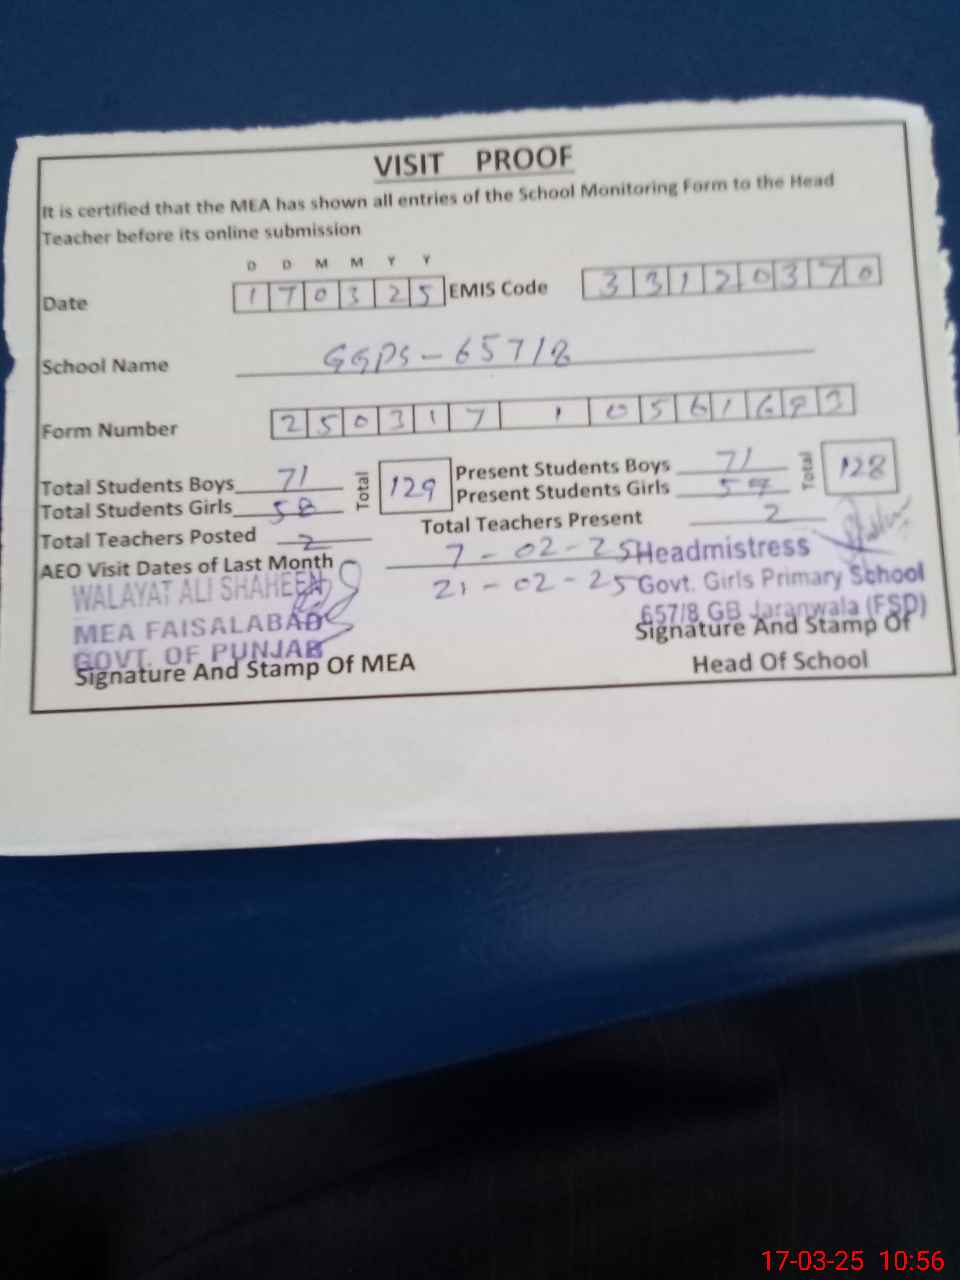 VISIT PROOF
It is certified that the MEA has shown all entries of the School Monitoring Form to the Head
Teacher before its online submission
D D M M Y Y
Date 1 7 0 3 2 5 EMIS Code 3 3 1 2 0 3 7 0
School Name GGPS - 657/8
Form Number 2 5 0 3 1 7 1 0 5 6 1 6 9 3
Total Students Boys 71 Total 129 Present Students Boys 71 Total 128
Total Students Girls 58 Present Students Girls 57
Total Teachers Posted 2 Total Teachers Present 2
AEO Visit Dates of Last Month 7-02-25 Headmistress
WALAYAT ALI SHAHEEN 21-02-25 Govt. Girls Primary School
MEA FAISALABAD 657/8 GB Jaranwala (FSD)
GOVT. OF PUNJAB Signature And Stamp Of
Signature And Stamp Of MEA Head Of School
17-03-25 10:56